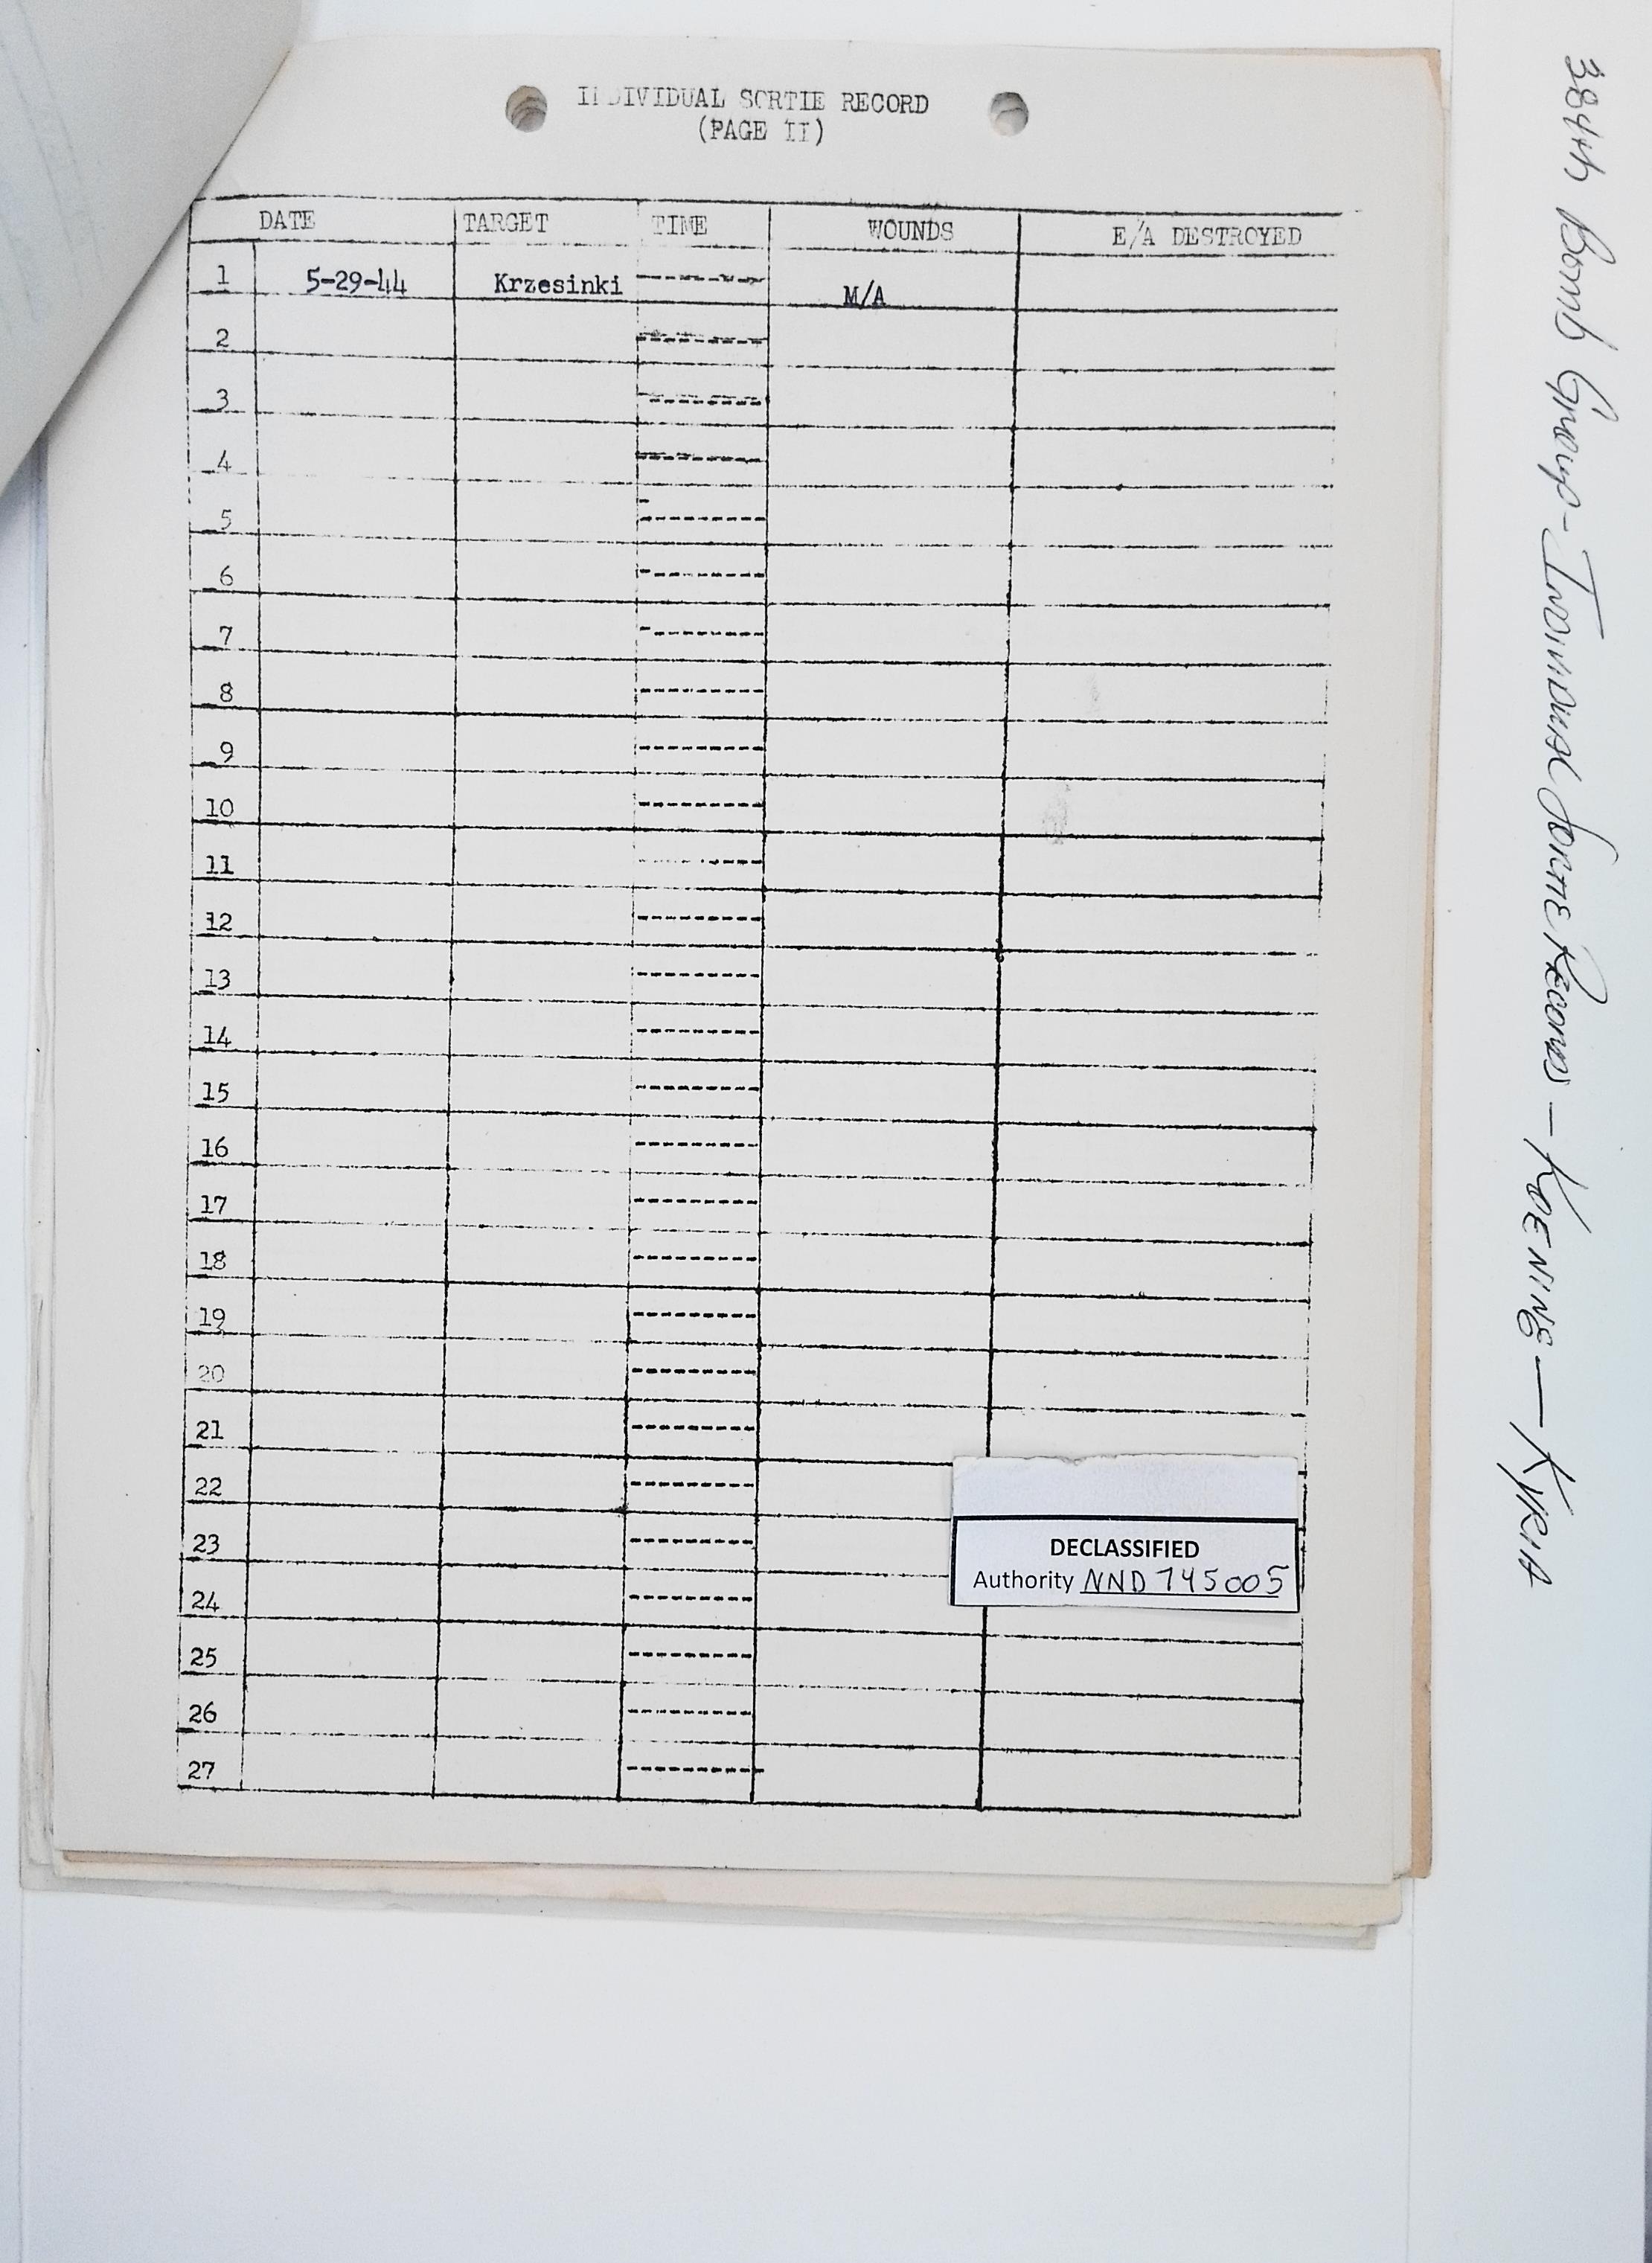 INDIVIDUAL SORTIE RECORD
(PAGE II)
DATE TARGET TIME WOUNDS E/A DESTROYED
1 5-29-44 Krzesinki --------- M/A
2 ---------
3 ---------
4 ---------
5 ---------
6 ---------
7 ---------
8 ---------
9 ---------
10 ---------
11 ---------
12 ---------
13 ---------
14 ---------
15 ---------
16 ---------
17 ---------
18 ---------
19 ---------
20 ---------
21 ---------
22 ---------
23 ---------
24 ---------
25 ---------
26 ---------
27 ---------
DECLASSIFIED
Authority NND 745005
384th Bomb Group - Individual Sortie Records - KOENING - KYRIA